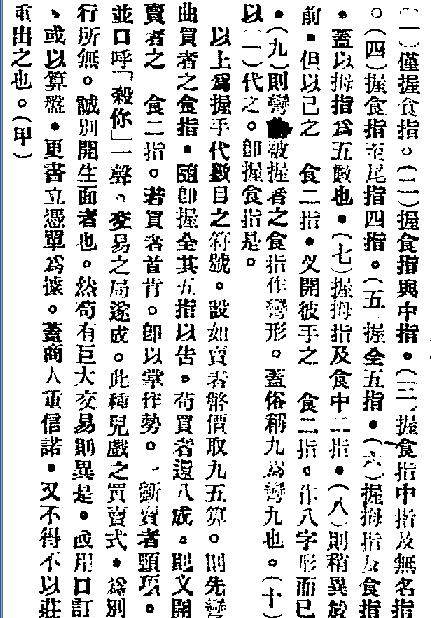 (一)僅握食指。(二)握食指與中指。(三)握食指中指及無名指
。(四)握食指至尾指四指。(五)握全五指。(六)握拇指及食指
。蓋以拇指爲五數也。(七)握拇指及食中二指。(八)則稍異於
前。但以己之 食二指。义開彼手之 食二指。作八字形而已
。(九)則彎 被握者之食指作彎形。蓋俗稱九爲彎九也。(十)
以(一)代之。卽握食指是。
以上爲握手代數目之符號。設如賣者幣價取九五算。則先彎
曲買者之食指。隨卽握全其五指以告。苟買者還八成。則义開
賣者之 食二指。若買者首肯。卽以掌作勢。一斷賣者頸項。
並口呼「殺你」一聲。交易之局遂成。此種兒戲之買賣式。爲別
行所無。誠別開生面者也。然苟有巨大交易則異是。或用口訂
、或以算盤。更書立憑單爲據。蓋商人重信諾。又不得不以莊
重出之也。(甲)